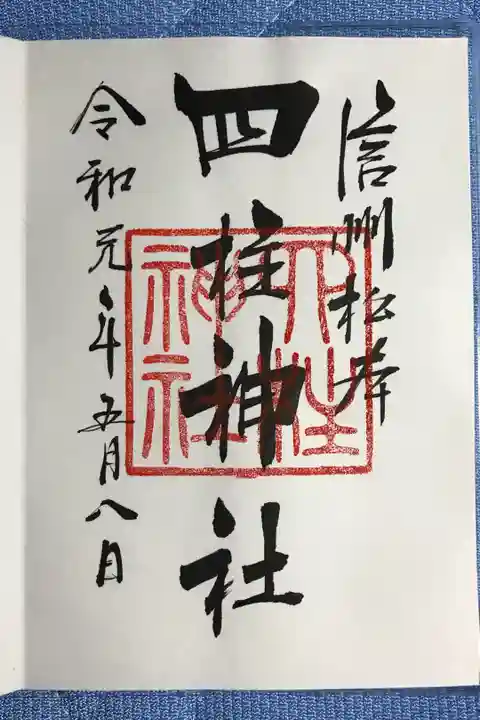 信州松本
四柱神社
令和元年五月八日
四柱神社